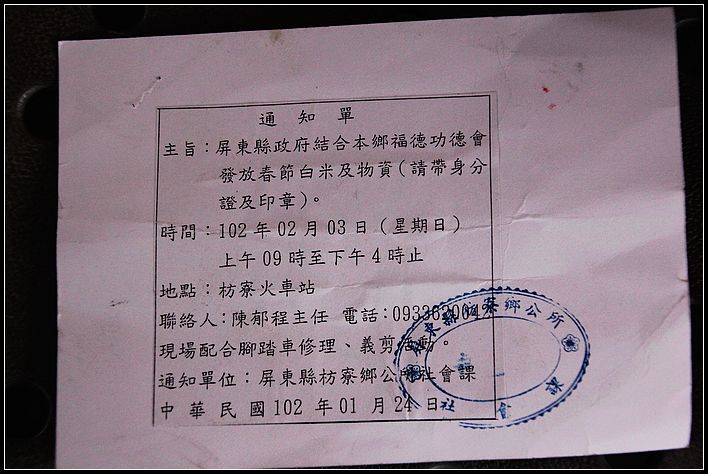 通知單
主旨：屏東縣政府結合本鄉福德功德會
發放春節白米及物資(請帶身分
證及印章)。
時間：102年02月03日(星期日)
上午09時至下午4時止
地點：枋寮火車站
聯絡人:陳郁程主任 電話:
現場配合腳踏車修理、義剪活動。
通知單位：屏東縣枋寮鄉公所社會課
中華民國102年01月24日
屏東縣枋寮鄉公所
社會課